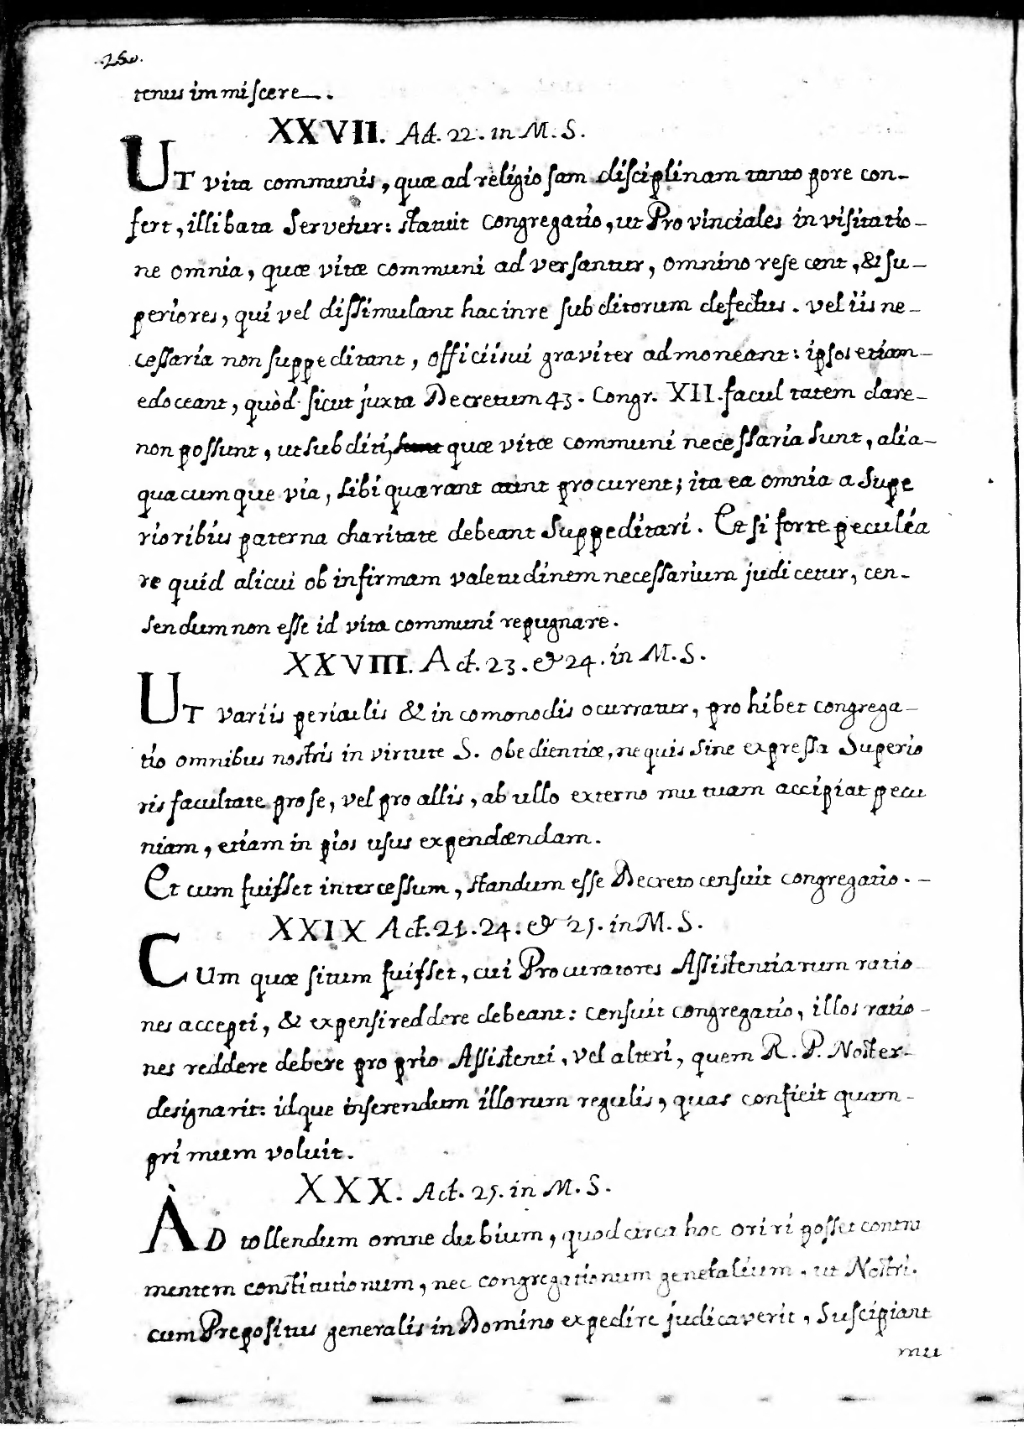 250.
tenus immiscere.
XXVII. Act. 22. in M. S.
UT vita communis, quæ ad religiosam disciplinam tanto pore con-
fert, illibata servetur: statuit Congregatio, ut Provinciales in visitatio-
ne omnia, quæ vitæ communi adversantur, omnino resecent, & su-
periores, qui vel dissimulant hac in re subditorum defectus. vel iis ne-
cessaria non suppeditant, officii sui graviter admoneant: ipsos etiam-
edoceant, quòd sicut juxta Decretum 43. Congr. XII. facultatem dare-
non possunt, ut subditi, quæ vitæ communi necessaria sunt, alia-
quacumque via, sibi quærant aut procurent; ita ea omnia a Supe
rioribus paterna charitate debeant suppeditari. Et si forte peculia
re quid alicui ob infirmam valetudinem necessarium judicetur, cen-
sendum non esse id vita communi repugnare.
XXVIII. Act. 23. & 24. in M. S.
UT variis periculis & incomonodis ocurratur, prohibet congrega-
tio omnibus nostris in virtute S. obedientiæ, ne quis sine expressa Superio
ris facultate pro se, vel pro allis, ab ullo externo mutuam accipiat pecu
niam, etiam in pios usus expendændam.
Et cum fuisset intercessum, standum esse Decreto censuit congregatio. -
XXIX Act. 21. 24. & 25. in M. S.
CUm quæsitum fuisset, cui Procuratores Assistentiarum ratio
nes accepti, & expensi reddere debeant: censuit congregatio, illos ratio-
nes reddere debere proprio Assistenti, vel alteri, quem R. P. Noster-
designarit: idque inserendum illorum regulis, quas conficit quam-
primum voluit.
XXX. Act. 25. in M. S.
ÀD tollendum omne dubium, quod circa hoc oriri posset contra
mentem constitutionum, nec congregationum generalium, ut Nostri.
cum Prepositus generalis in Domino expedire judicaverit, suscipiant
mu